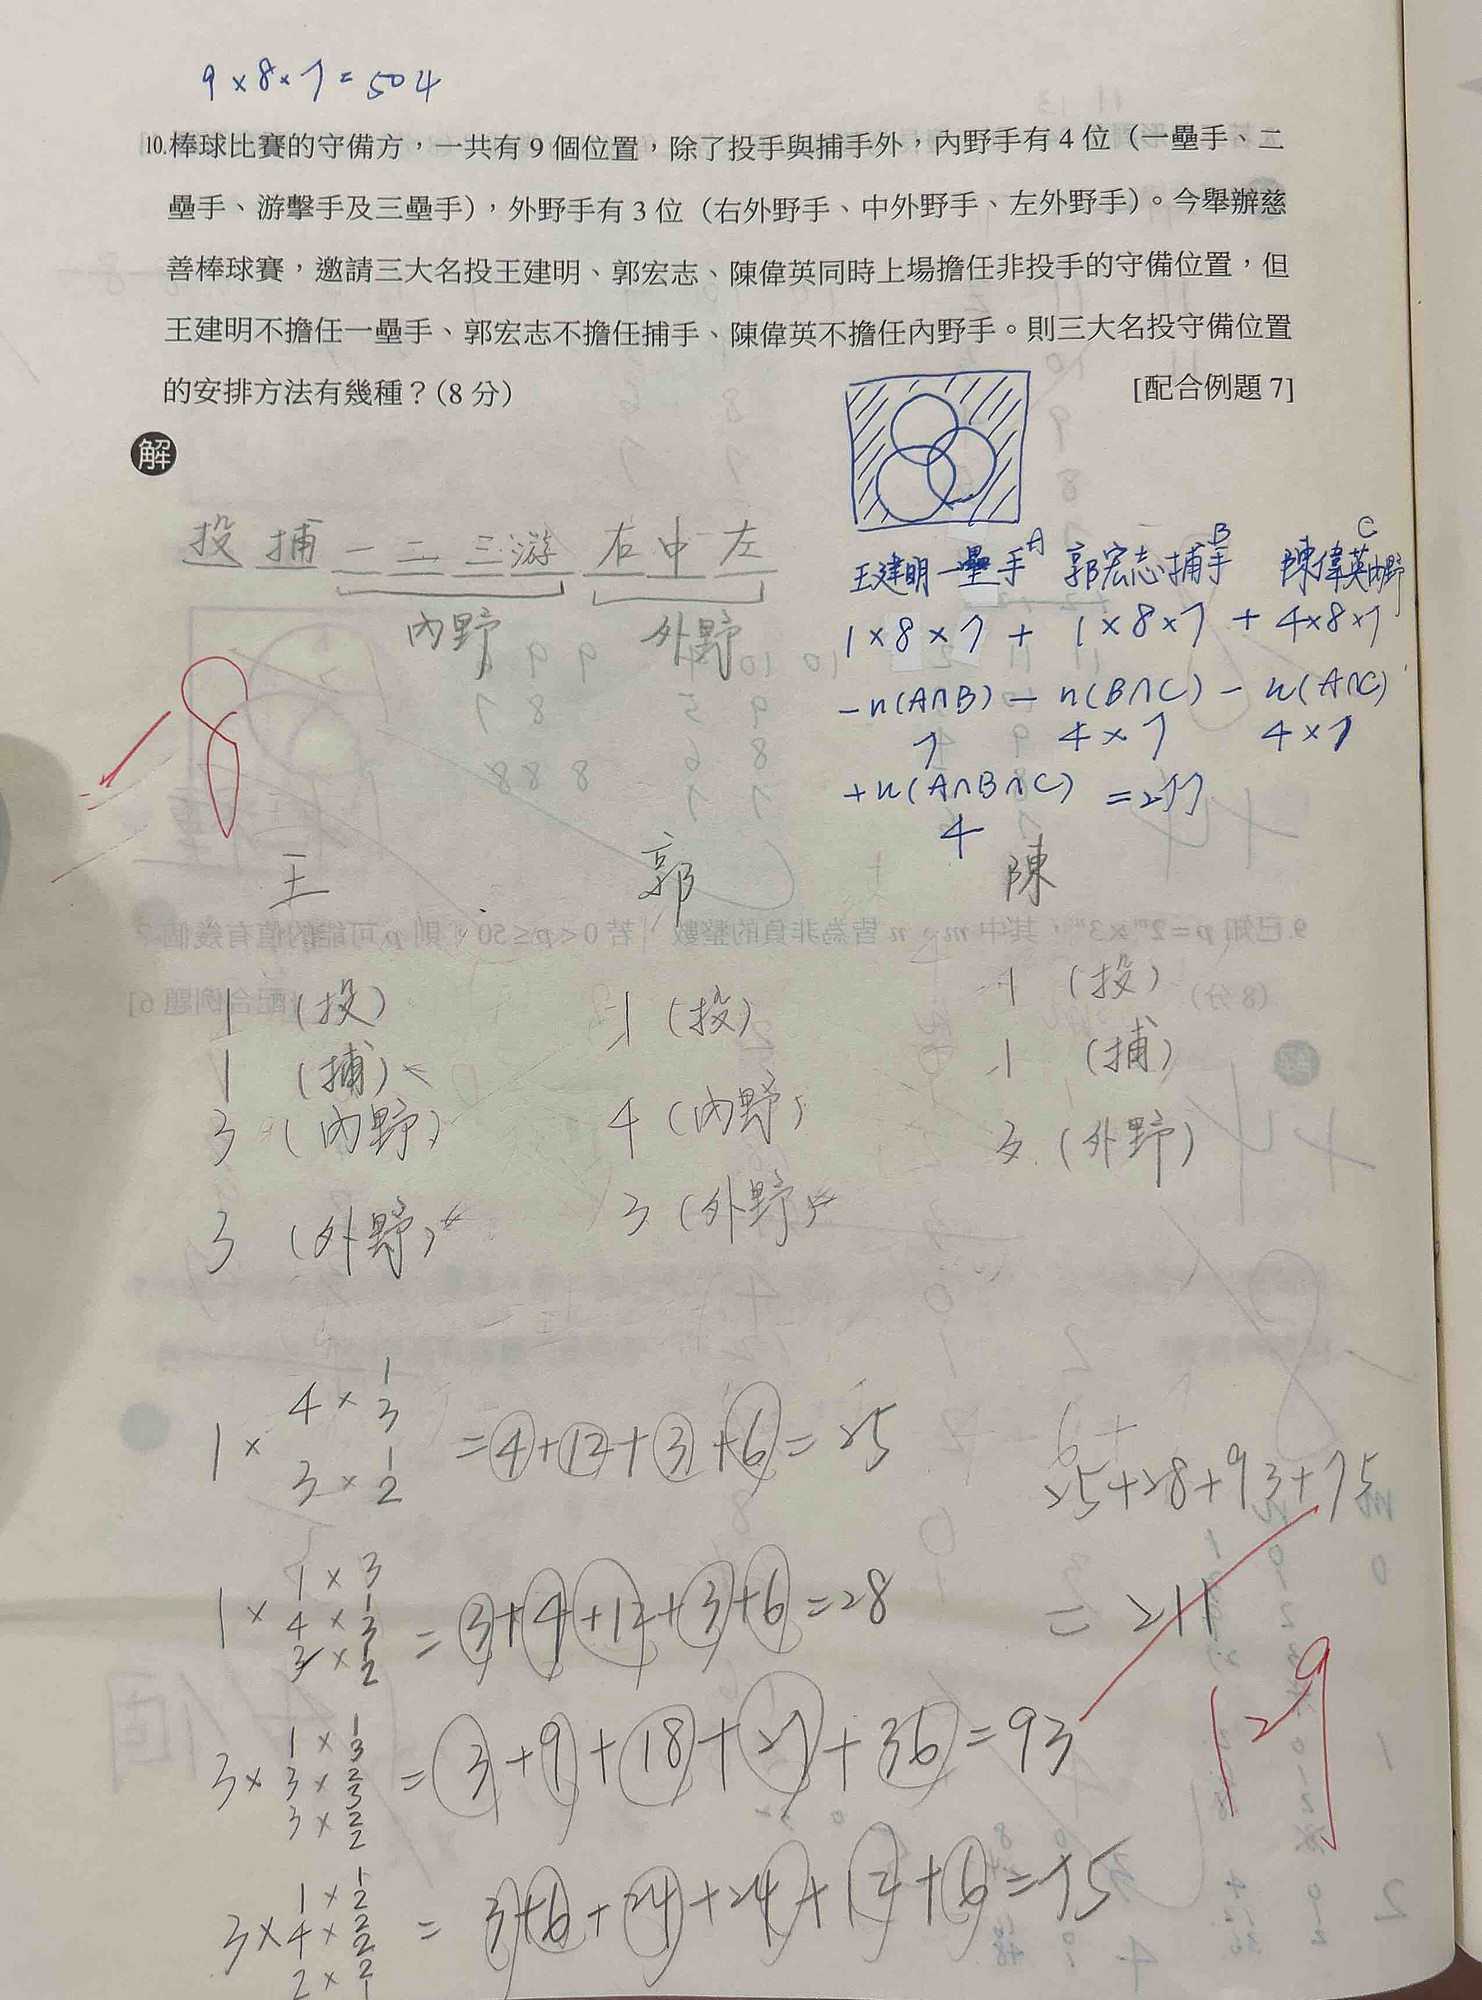 9×8×7=504
10.棒球比賽的守備方，一共有9個位置，除了投手與捕手外，內野手有4位（一壘手、二
壘手、游擊手及三壘手），外野手有3位（右外野手、中外野手、左外野手）。今舉辦慈
善棒球賽，邀請三大名投王建明、郭宏志、陳偉英同時上場擔任非投手的守備位置，但
王建明不擔任一壘手、郭宏志不擔任捕手、陳偉英不擔任內野手。則三大名投守備位置
的安排方法有幾種？(8分)
[配合例題7]
解
投 捕 一 二 三 游 右 中 左
內野 外野
A B C
王建明一壘手 郭宏志捕手 陳偉英內野
1×8×7 + 1×8×7 + 4×8×7
-n(A∩B) - n(B∩C) - n(A∩C)
7 4×7 4×7
+n(A∩B∩C) =277
4
-8
王 郭 陳
1 (投) 1 (投) 1 (投)
1 (捕) 4 (內野) 1 (捕)
3 (內野) 3 (外野) 3 (外野)
3 (外野)
1× 4× 1 3
3× 1 2
=4+12+3+6=25
1× 1×3
4× 1 3
3× 1 2
=3+4+12+3+6=28
3× 1× 1 3
3×
3×
=3+9+18+27+36=93
3× 1× 1 2
4×
2×
=3+6+24+24+12+6=75
25+28+93+75
=211
129